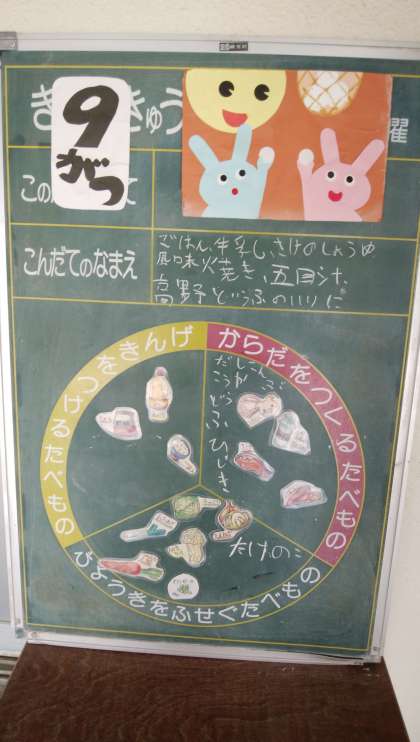 き
きゅう
曜
9がつ
この
て
こんだてのなまえ
ごはん、牛乳、さけのしょうゆ
風味焼き、五目汁、
高野どうふのいりに
げんきをつけるたべもの
からだをつくるたべもの
こうやどうふ
だし
ひじき
たけのこ
びょうきをふせぐたべもの